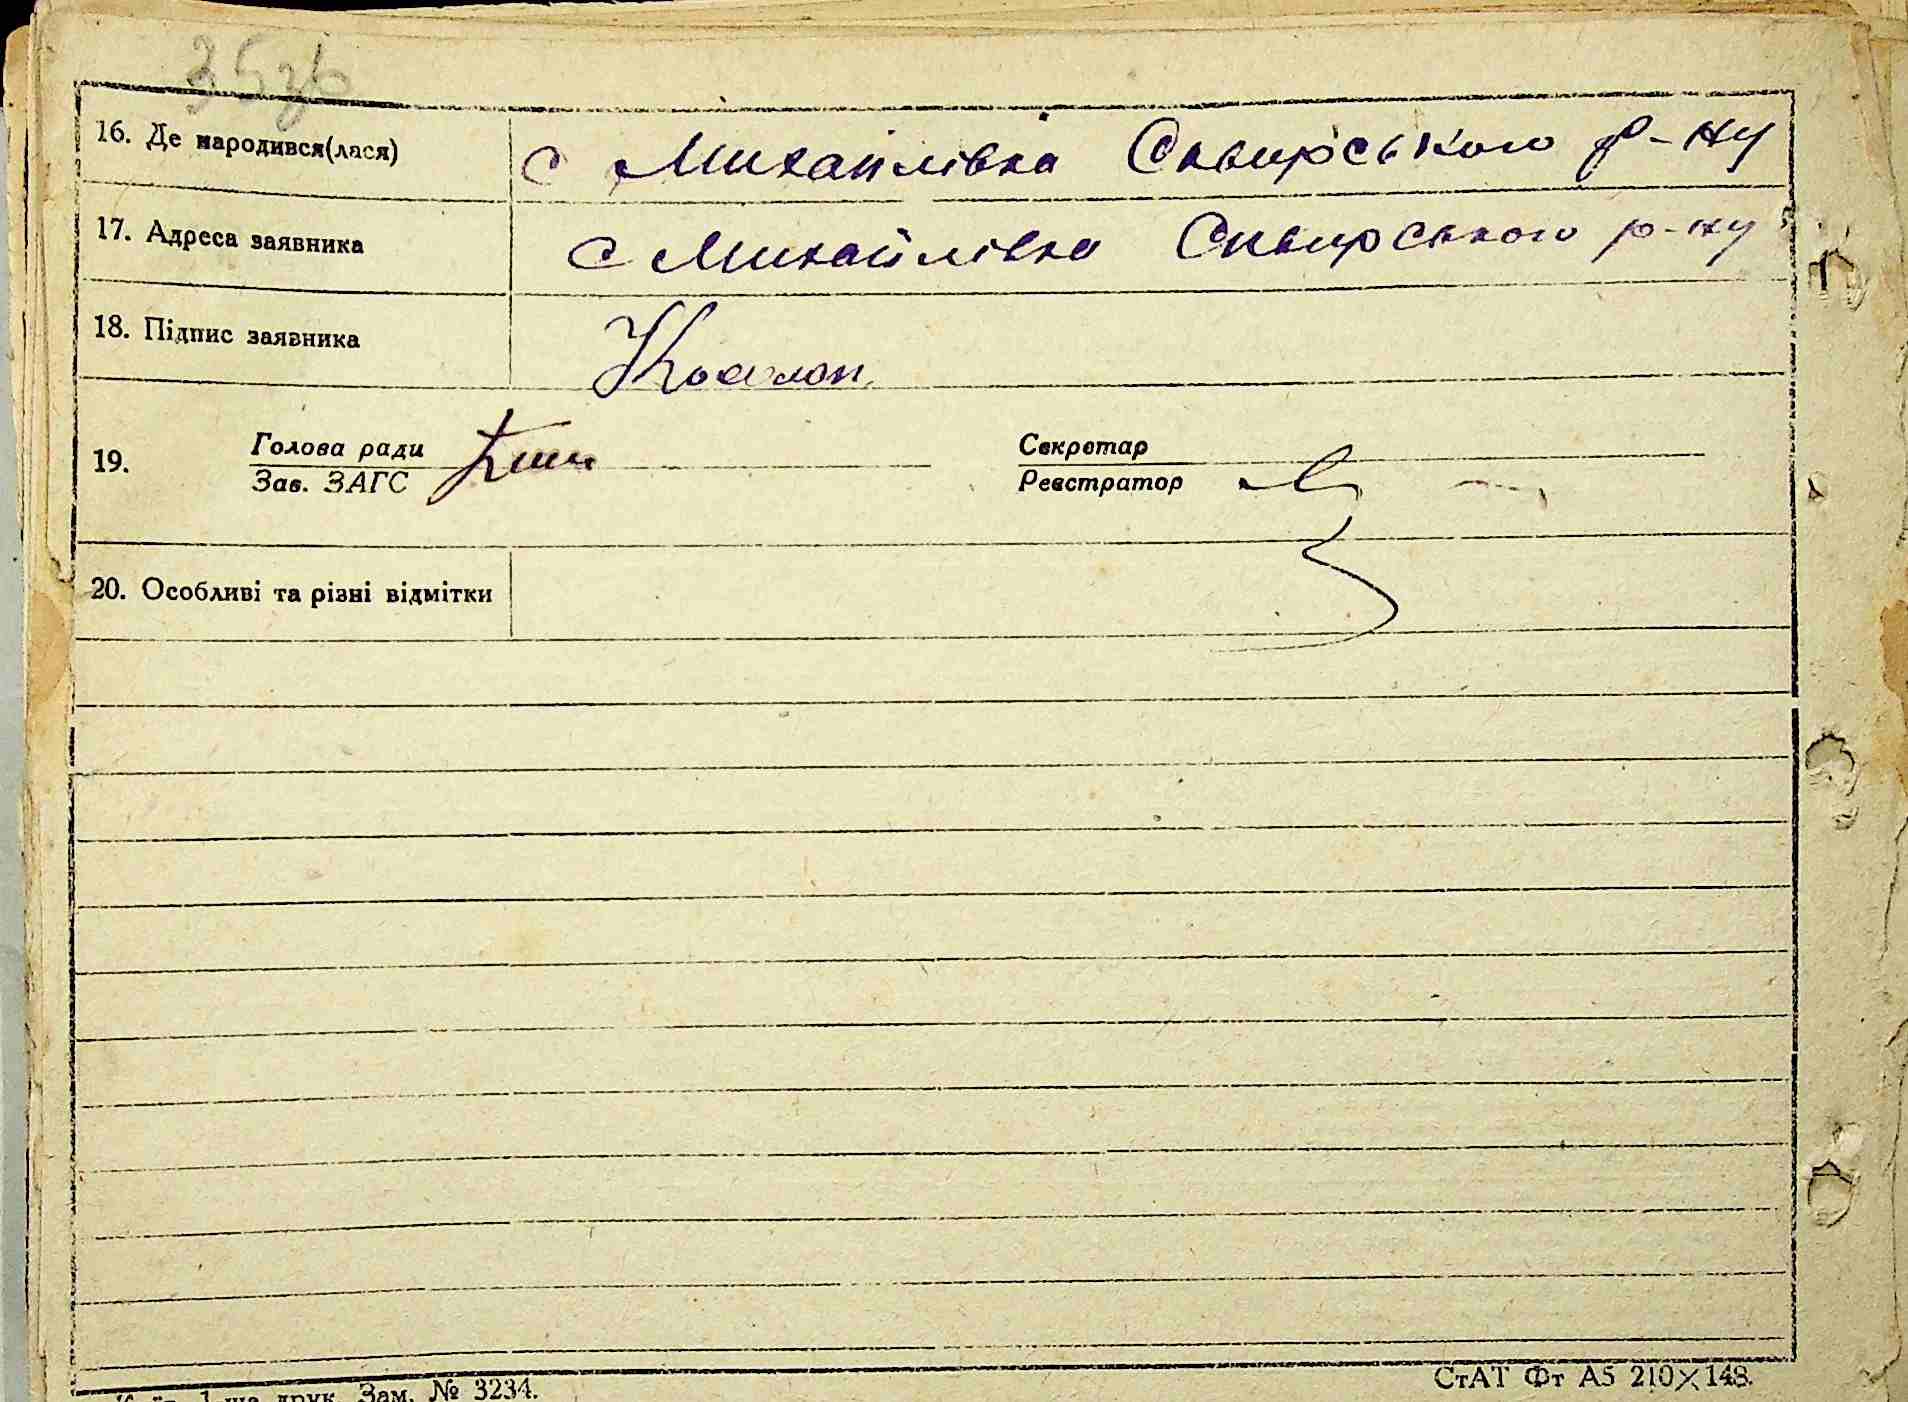 35зв
16. Де народився(лася) с Михайлівка Сквирського р-ну
17. Адреса заявника с Михайлівка Сквирського р-ну
18. Підпис заявника
19. Голова ради Секретар
Зав. ЗАГС Реєстратор
20. Особливі та різні відмітки
Київ, 1-ша друк. Зам. № 3234. СтАТ Фт А5 210×148.